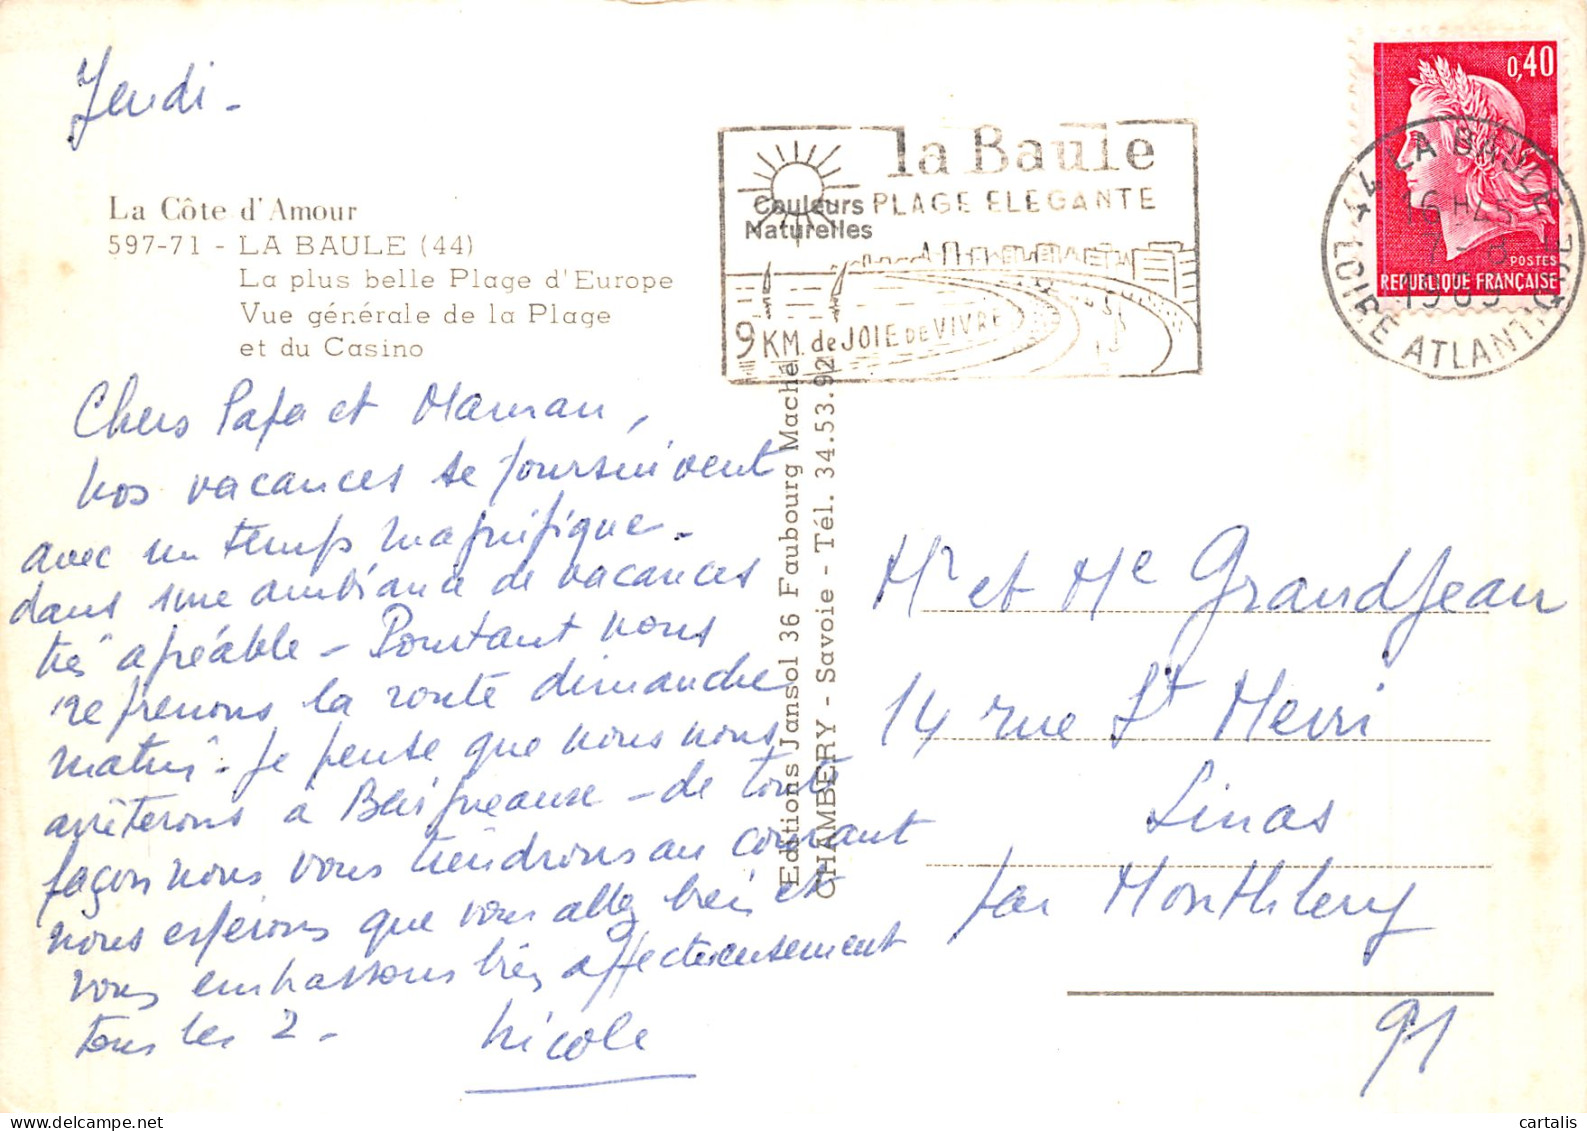 Jeudi -
La Côte d'Amour
597-71 - LA BAULE (44)
La plus belle Plage d'Europe
Vue générale de la Plage
et du Casino
Couleurs
Naturelles
la Baule
PLAGE ELEGANTE
9 KM. de JOIE DE VIVRE
0,40
POSTES
REPUBLIQUE FRANÇAISE
44 LA BAULE
16 H45
7 - 8
1969
LOIRE ATLANTIQUE
Chers Papa et Maman,
Nos vacances se poursuivent
avec un temps magnifique -
dans une ambiance de vacances
très agréable - Pourtant nous
reprenons la route dimanche
matin - Je pense que nous nous
arrêterons à Baigneaux - de toute
façon nous vous tiendrons au courant
nous espérons que vous allez bien et
vous embrassons bien affectueusement
tous les 2 -
Nicole
Editions Jansol 36 Faubourg Maché
CHAMBERY - Savoie - Tél. 34.53.92
Mr et Me Grandjean
14 rue St Merri
Linas
par Monthlery
91
cartalis
delcampe.net